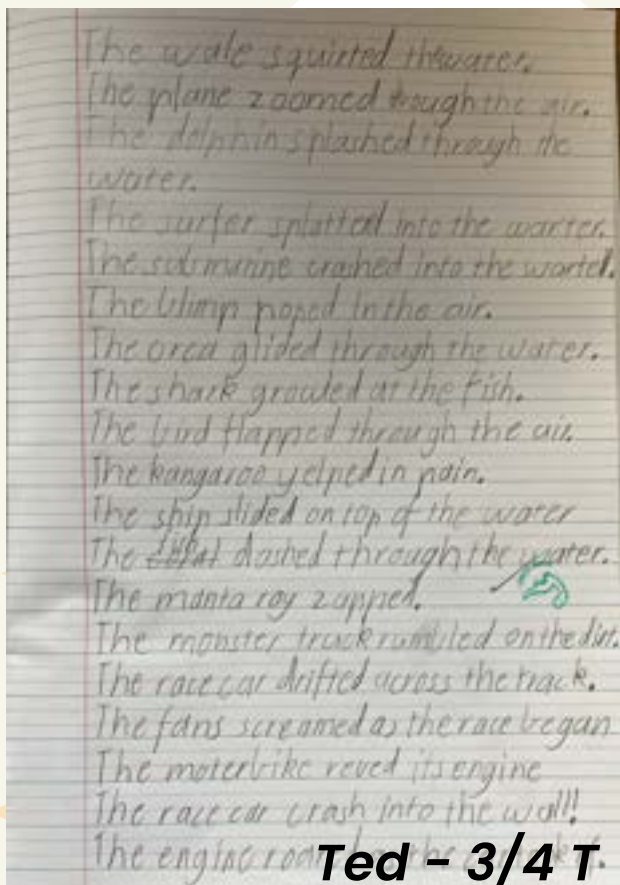 The wale squirted thewater.
The plane zoomed trough the air.
The dolphin splashed through the
water.
The surfer splatted into the warter.
The submurine crashed into the warter.
The blimp poped in the air.
The orca glided through the water.
The shark growled at the fish.
The bird flapped through the air.
The kangaroo yelped in pain.
The ship slided on top of the water
The dashed through the water.
The manta ray zapped.
The monster truck rumbled on the dirt.
The race car drifted across the track.
The fans screamed as the race began
The moterbike reved its engine
The race car crash into the wall!
The engine
Ted - 3/4 T.